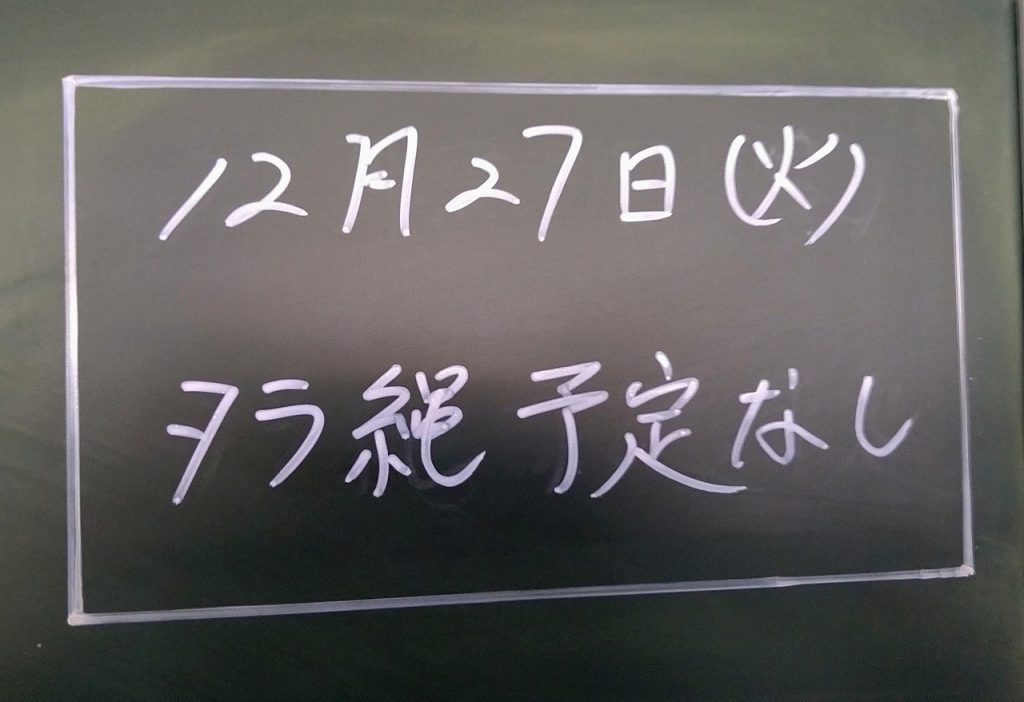 12月27日(火)
タラ縄 予定なし